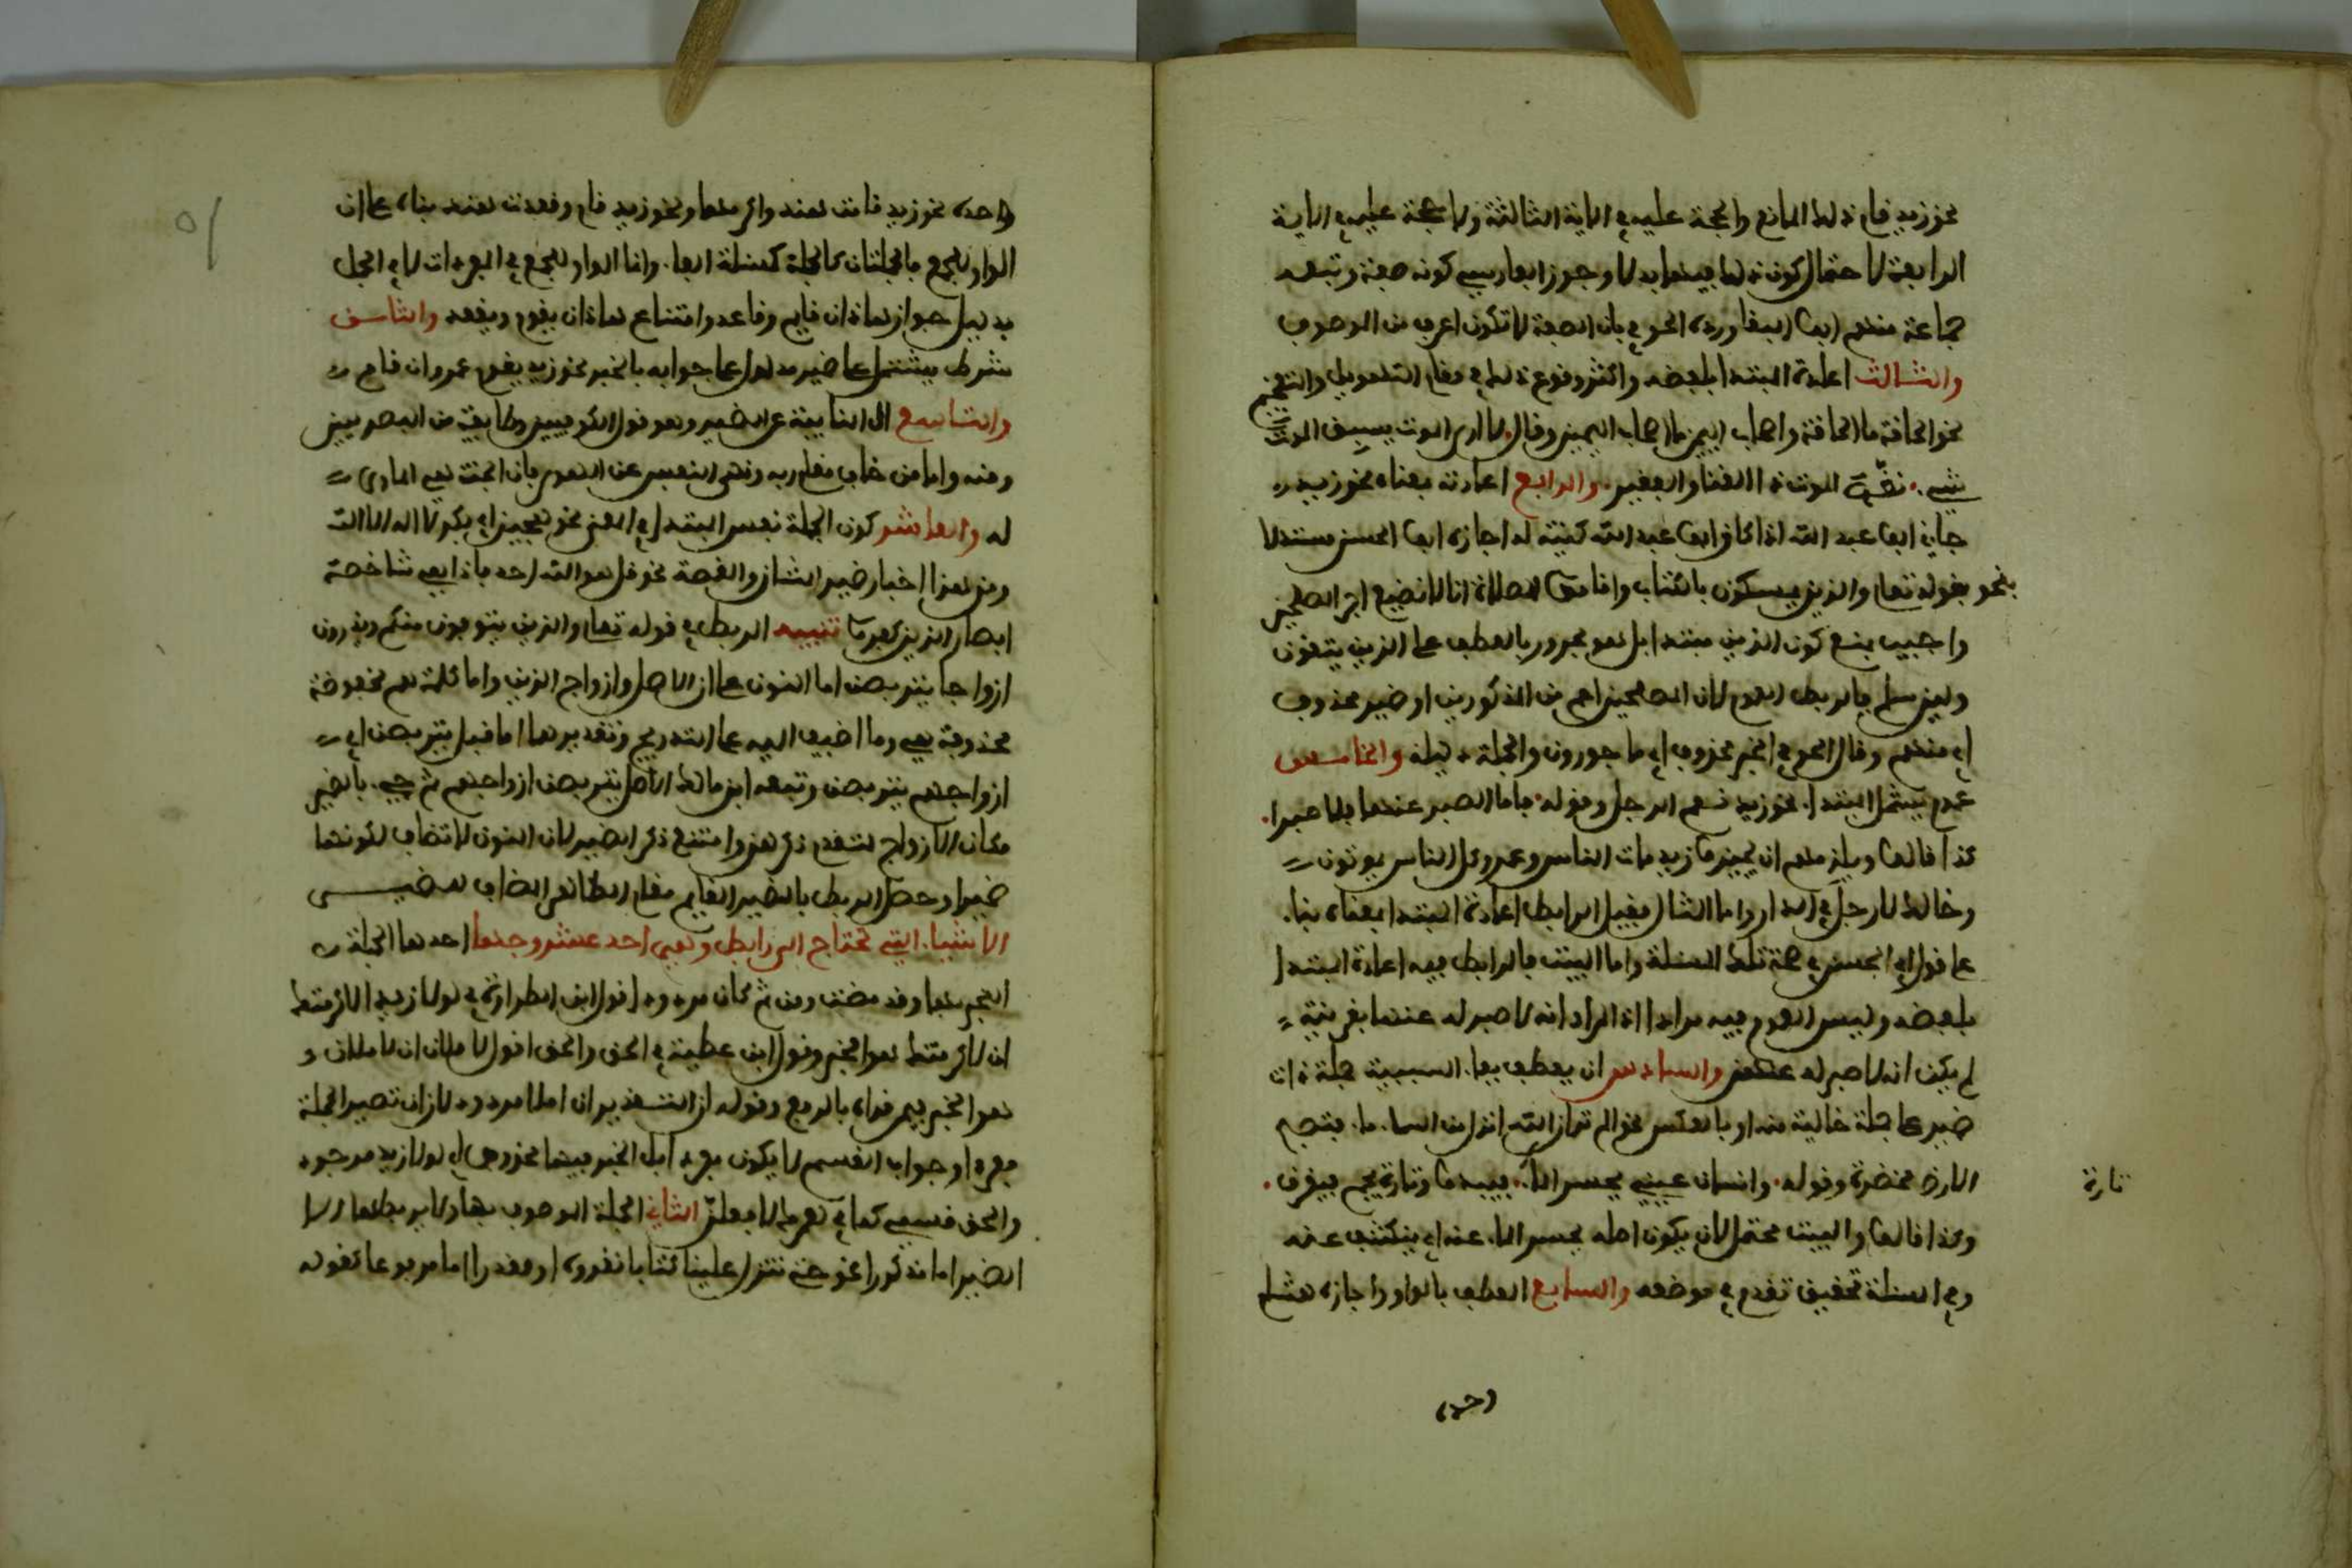 نحو زيد قام ذلك المانع والحجة عليه في الاية الثالثة ولا حجة عليه في الاية
الرابعة لاحتمال كون ذلك فيهما بدلا وجوز الفارسي كونه صفة وتبعه
جماعة منهم ابو البقاء ورده الحوفي بان الصفة لا تكون اعرف من الموصوف
والثالث اعادة المبتدا بلفظه واكثر وقوع ذلك في مقام التهويل والتفخيم
نحو الحاقة ما الحاقة واصحاب اليمين ما اصحاب اليمين وقال لا ارى الموت يسبق الموت
شيء نغص الموت ذا الغنا والفقير والرابع اعادته بمعناه نحو زيد
جاني ابو عبد الله اذا كان ابو عبد الله كنية له اجازه ابو الحسن مستدلا
بنحو بقوله تعالى والذين يمسكون بالكتاب واقاموا الصلاة انا لا نضيع اجر المصلحين
واجيب بمنع كون الذين مبتدا بل هو مجرور بالعطف على الذين يتقون
ولين سلم فالربط العموم لان المصلحين اعم من المذكورين او ضمير محذوف
اي منهم وقال الحوفي الخبر محذوف اي ماجورون والجملة دليله والخامس
عموم يشمل المبتدا نحو زيد نعم الرجل وقوله فاما الصبر عنها فلا صبرا
كذا قالوا ويلزمهم ان يجيزوا زيد مات الناس وعمرو كل الناس يموتون
وخالد لا رجل في الدار واما المثال فقيل الرابط اعادة المبتدا بمعناه بنا
على قول ابي الحسن في صحة تلك المسئلة واما البيت فالرابط فيه اعادة المبتدا
بلفظه وليس العموم فيه مرادا اذ المراد انه لا صبر له عنها بقرينة
لم يكن انه لا صبر له والسادس ان يعطف بفا السببية جملة ذات
ضمير على جملة خالية منه او بالعكس نحو الم تر ان الله انزل من السما ما فتصبح
الارض مخضرة وقوله وانسان عيني يحسر الما فيبدو وتارة يجم فيغرق
تارة
وكذا قالوا والبيت محتمل لان يكون اصله يحسر الما عنه اي ينكشف عنه
وفي المسئلة تحقيق تقدم في موضعه والسابع العطف بالواو واجازه هشام
وحده
واحده نحو زيد قامت هند واكرمها ونحو زيد قام وقعدت هند بناء على ان
الواو للجمع فالجملتان كالجملة كمسئلة الفا وانما الواو للجمع في المفردات لا في الجمل
بدليل جواز هاذان قايم وقاعد وامتناع هاذان يقوم ويقعد والثامن
شرط يشتمل على ضمير مدلول على جوابه بالخبر نحو زيد يقوم عمرو ان قام
والتاسع ال النايبة عن الضمير وهو قول الكوفيين وطايفة من البصريين
ومنه واما من خاف مقام ربه ونهى النفس عن الهوى فان الجنة هي الماوى
له والعاشر كون الجملة نفس المبتدا في المعنى نحو هجيرا ابي بكر لا اله الا الله
ومن هذا اخبار ضمير الشان والقصة نحو قل هو الله احد فاذا هي شاخصة
ابصار الذين كفروا تنبيه الربط في قوله تعالى والذين يتوفون منكم ويذرون
ازواجا يتربصن اما النون على ان الاصل وازواج الذين واما كلمة هم مخفوضة
محذوفة هي وما اضيف اليه على التدريج وتقديرها اما قبل يتربصن اي
ازواجهم يتربصن وتبعه ابن مالك الاصل يتربصن ازواجهم ثم جيء بالضمير
مكان الازواج لتقدم ذكرهن وامتنع ذكر الضمير لان النون لا تضاف لكونها
ضميرا وحصل الربط بالضمير القايم مقام الظاهر المضاف للضمير
الاشيا التي تحتاج الى رابط وهي احد عشر وجدها احدها الجملة
المخبر بها وقد مضت ومن ثم كان مردودا قول ابن الطراوة في لولا زيد لاكرمتك
ان لاكرمتك هو الخبر وقول ابن عطية في الحق والحق اقول لاملان ان لاملان
هو الخبر فيمن قراه بالرفع وقوله ان التقدير ان املا مردود لان ان تصير الجملة
مفردا وجواب القسم لا يكون مفردا بل الخبر فيهما محذوف اي لولا زيد موجود
والحق قسمي كما في لعمرك لافعلن الثاني الجملة الموصوف بها ولا يربطها الا
الضمير اما مذكورا نحو حتى تنزل علينا كتابا نقروه او مقدرا اما مرفوعا كقوله